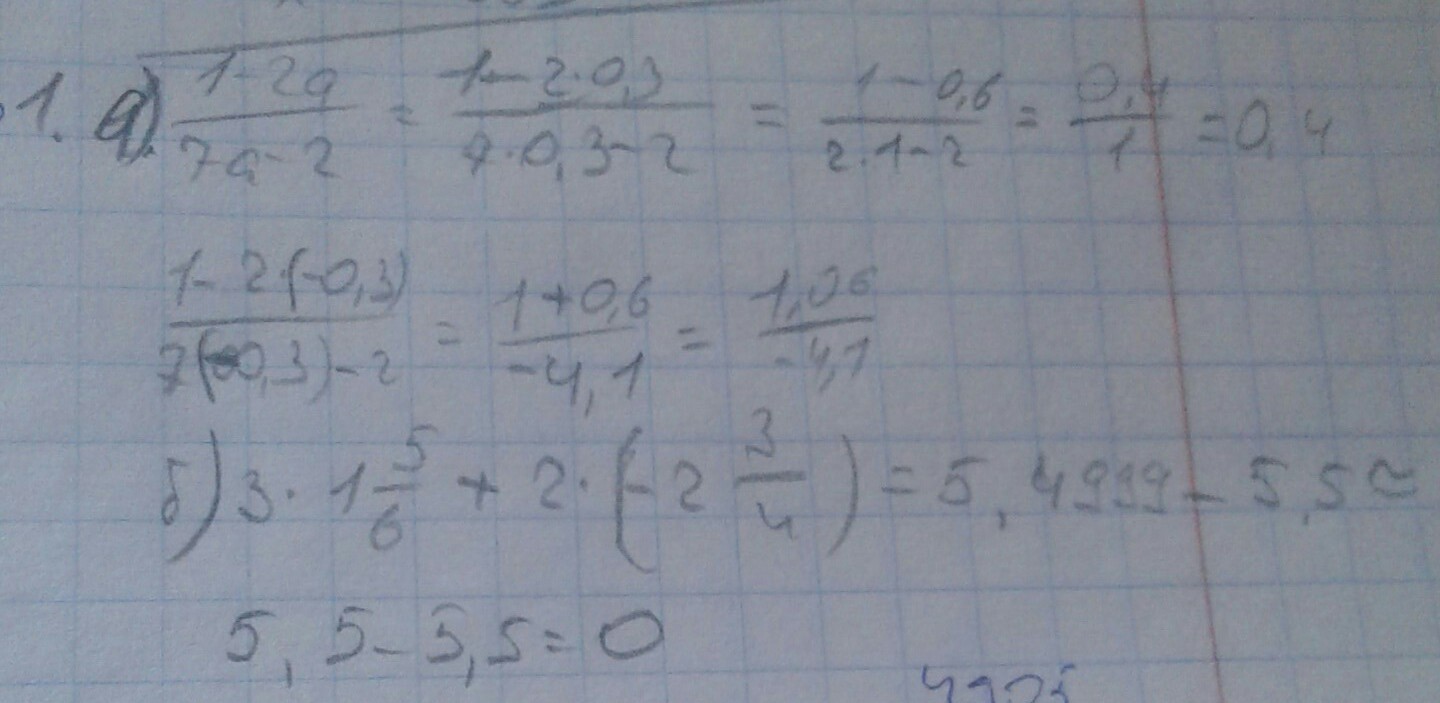 1. а) (1-2a)/(7a-2) = (1-2·0,3)/(7·0,3-2) = (1-0,6)/(2·1-2) = 0,4/1 = 0,4
(1-2·(-0,3))/(7(-0,3)-2) = (1+0,6)/(-4,1) = 1,06/(-4,1)
б) 3·1 5/6 + 2·(-2 3/4) = 5,4999 - 5,5 ≈
5,5-5,5=0